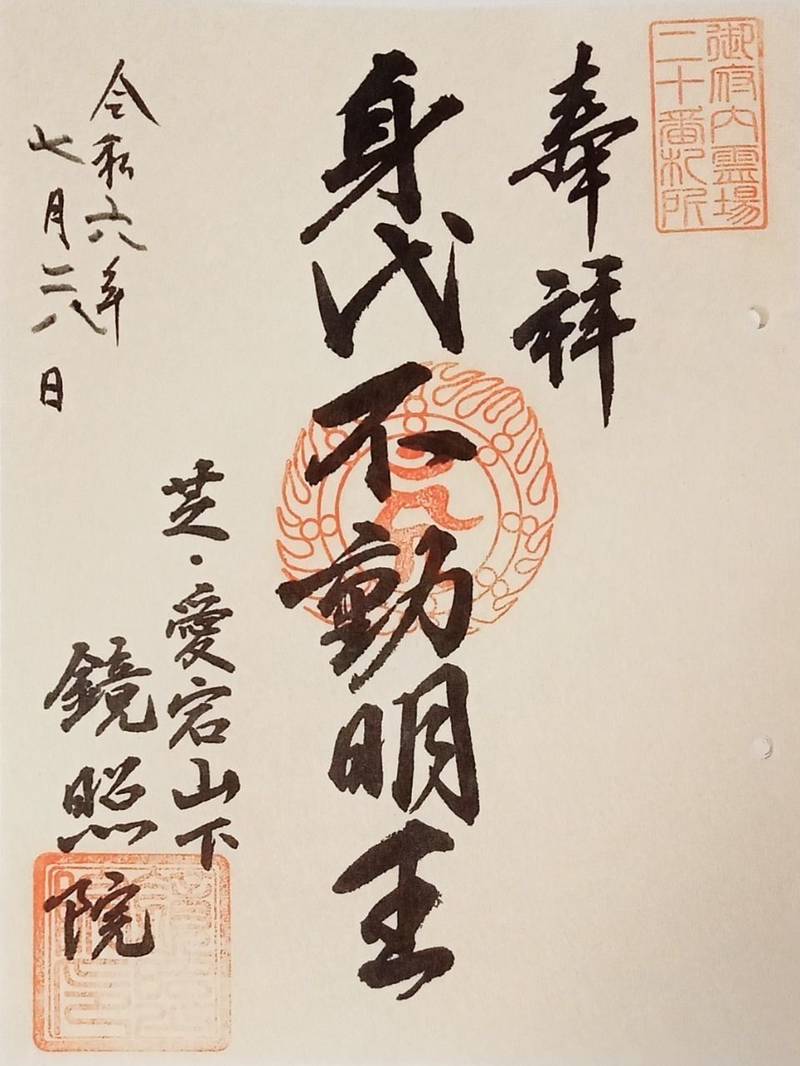 御府内霊場
二十番札所
奉拝
身代不動明王
芝・愛宕山下
鏡照院
令和六年
七月二八日